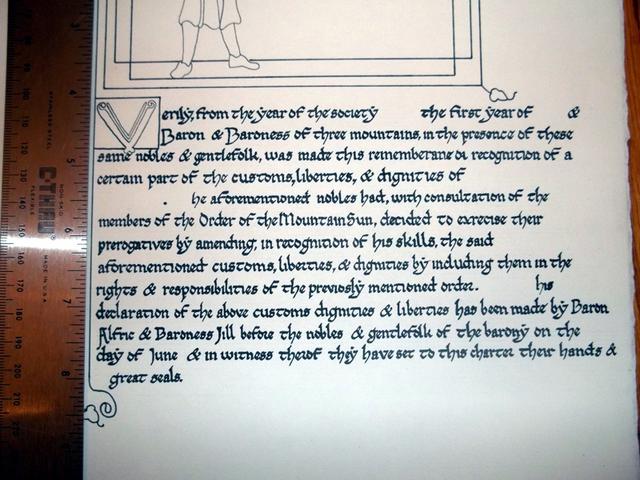 Verily, from the year of the society the first year of &
Baron & Baroness of three mountains, in the presence of these
same nobles & gentlefolk, was made this rememberane or recognition of a
certain part of the customs, liberties, & dignities of
he aforementioned nobles had, with consultation of the
members of the Order of the Mountain Sun, decided to exercise their
prerogatives by amending, in recognition of his skills, the said
aforementioned customs, liberties, & dignities by including them in the
rights & responsibilities of the previosly mentioned order. his
declaration of the above customs dignities & liberties has been made by Baron
Alfric & Baroness Jill before the nobles & gentlefolk of the barony on the
day of June & in witness therof they have set to this charter their hands &
great seals.
CTHRU
FLEXIBLE
STAINLESS STEEL
MADE IN U.S.A.
4
5
6
7
8